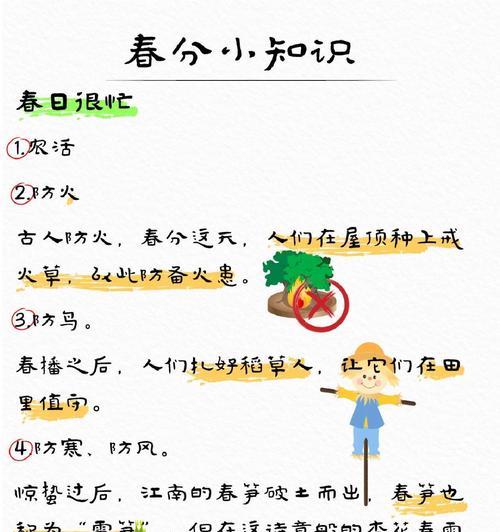 春分小知识
春日很忙
1.农活
2.防火
古人防火，春分这天，人们在屋顶种上戒
火草，以此防备火患。
3.防鸟。
春播之后，人们扎好稻草人，让它们在田
里值守。
4防寒、防风。
惊蛰过后，江南的春笋破土而出，春笋也
称为“雷笋”。但在这诗意般的杏花春雨